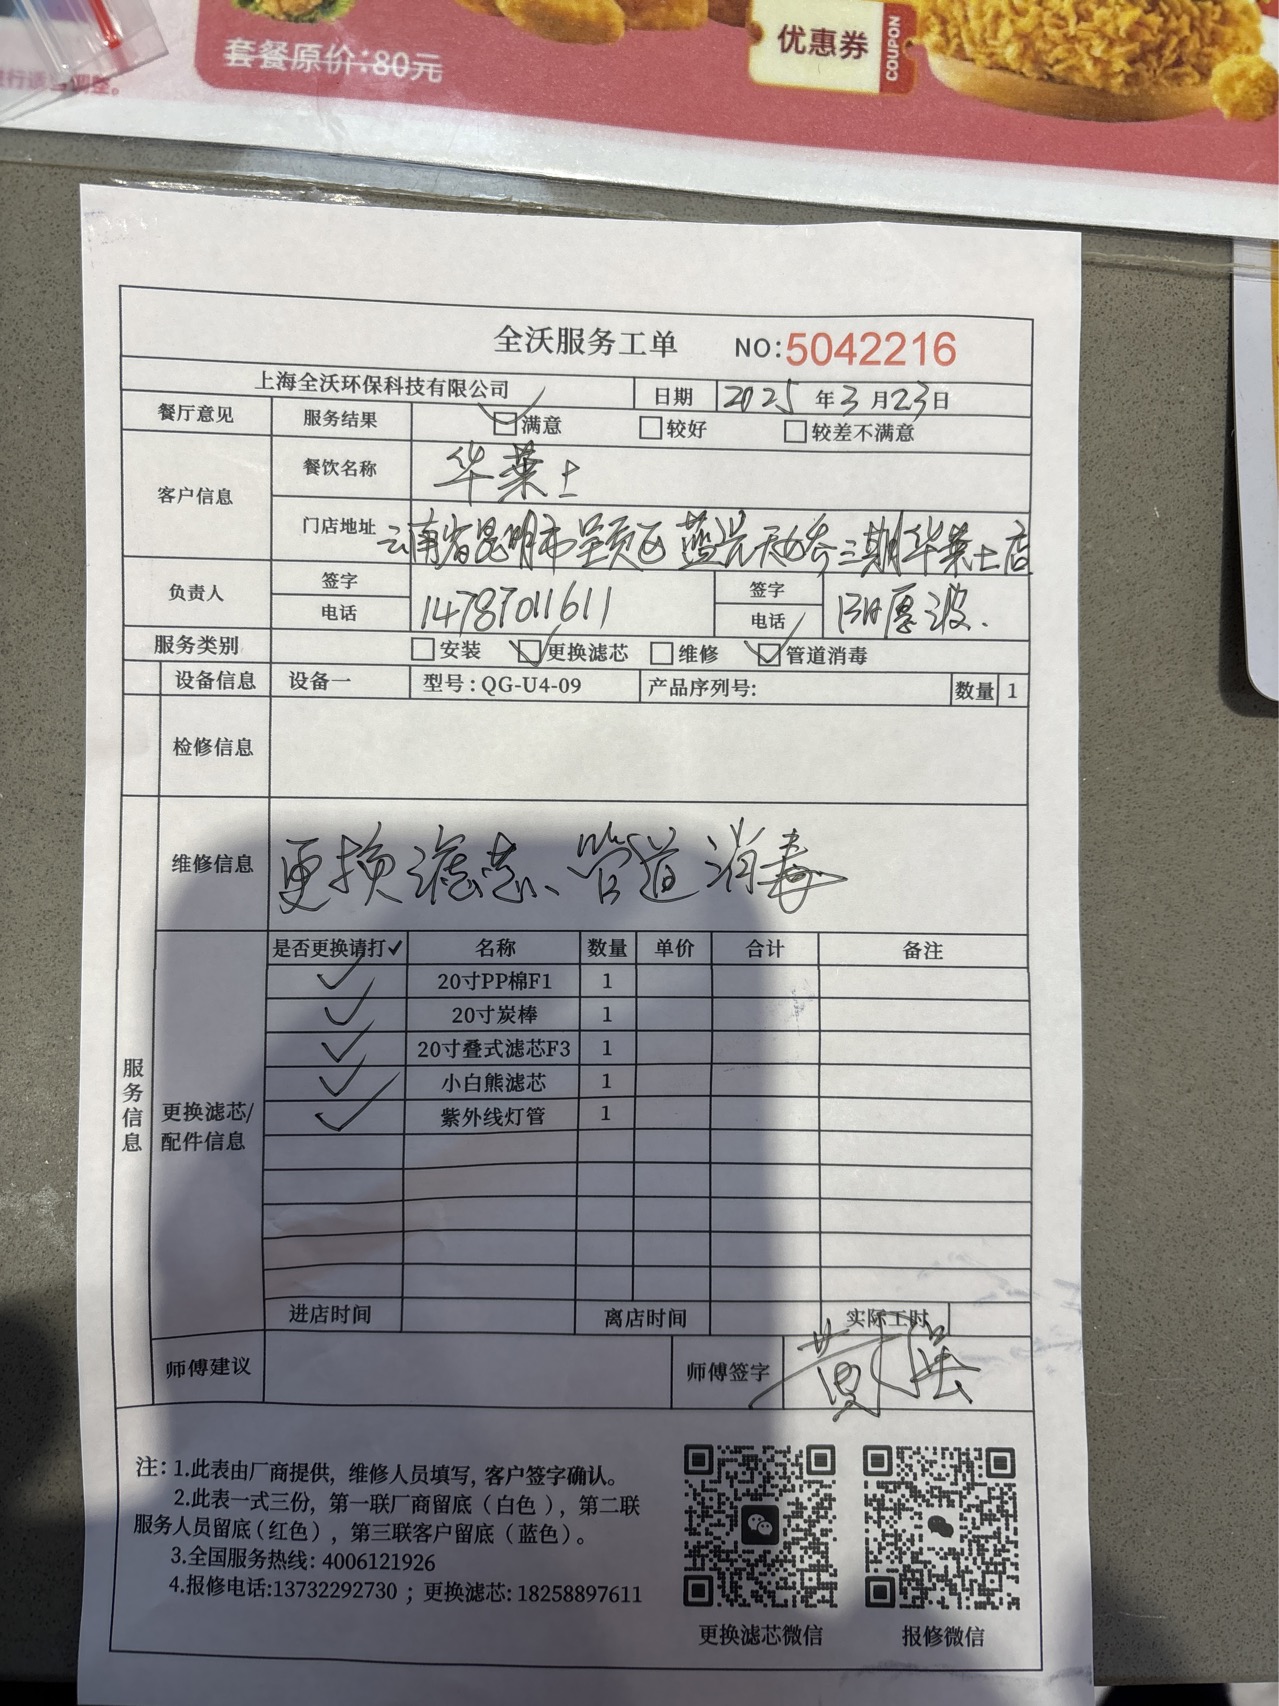 套餐原价:80元
优惠券
COUPON
全沃服务工单 NO:5042216
上海全沃环保科技有限公司 日期 2025 年 3 月 23 日
餐厅意见 服务结果 满意 较好 较差不满意
客户信息 餐饮名称 华莱士
门店地址 云南省昆明市呈贡区蓝光天娇三期华莱士店
负责人 签字 电话 14787011611 签字 电话 厚波
服务类别 安装 更换滤芯 维修 管道消毒
设备信息 设备一 型号:QG-U4-09 产品序列号: 数量 1
检修信息
维修信息 更换滤芯、管道消毒
服务信息
更换滤芯/配件信息
是否更换请打✓ 名称 数量 单价 合计 备注
✓ 20寸PP棉F1 1
✓ 20寸炭棒 1
✓ 20寸叠式滤芯F3 1
✓ 小白熊滤芯 1
✓ 紫外线灯管 1
进店时间 离店时间 实际工时
师傅建议 师傅签字 黄
注: 1.此表由厂商提供，维修人员填写, 客户签字确认。
2.此表一式三份，第一联厂商留底（白色），第二联
服务人员留底(红色)，第三联客户留底（蓝色）。
3.全国服务热线: 4006121926
4.报修电话:13732292730 ；更换滤芯: 18258897611
更换滤芯微信 报修微信